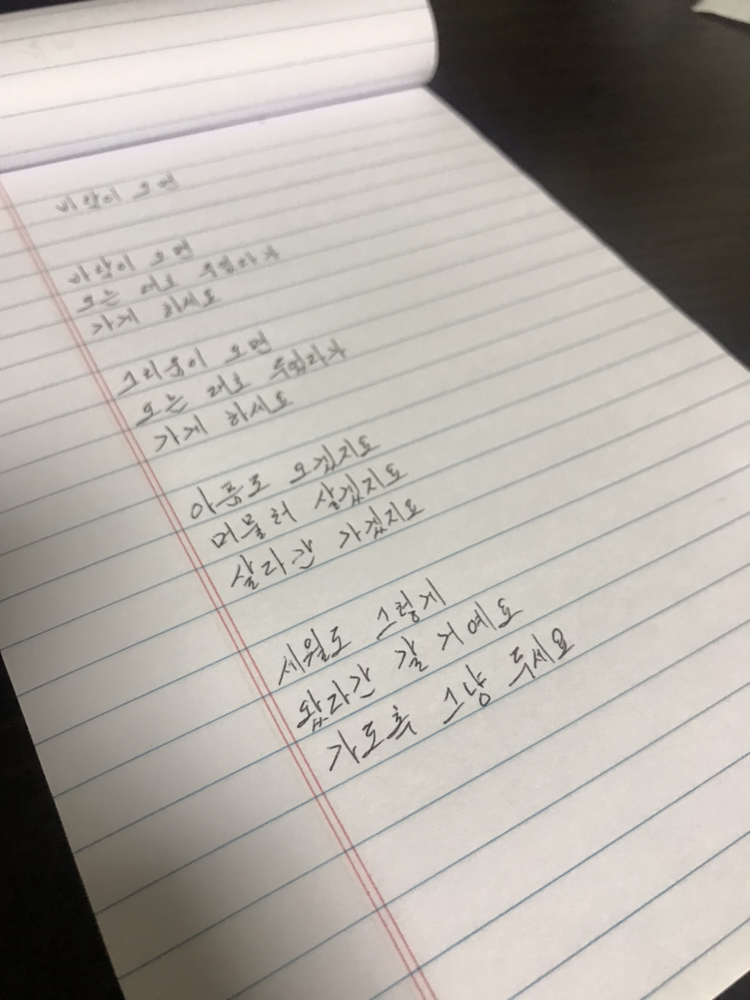 바람이 오면
바람이 오면
오는 대로 두었다가
가게 하세요
그리움이 오면
오는 대로 두었다가
가게 하세요
아픔도 오겠지요
머물러 살겠지요
살다간 가겠지요
세월도 그렇게
왔다간 갈 거예요
가도록 그냥 두세요